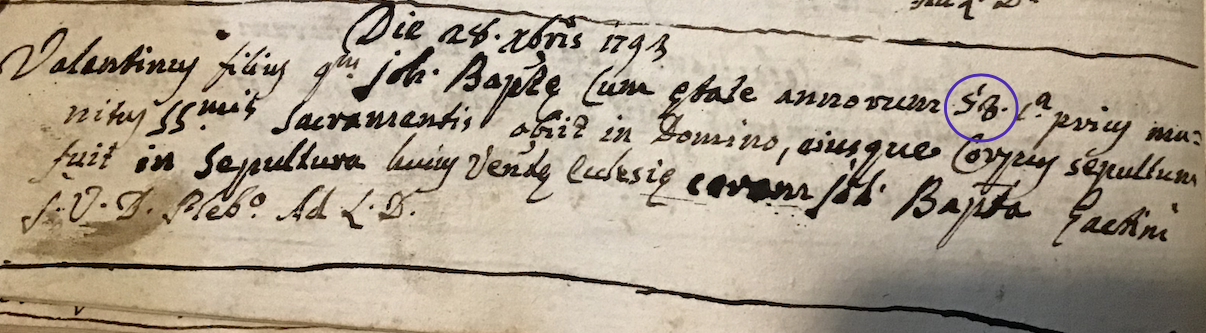 Die 28. Xbris 1793
Valantinus filius qm Joh. Baptę Cum ętate annorum 58. Ca prius mu=
nitus SSmis Sacramentis obijt in Domino, eiusque Corpus sepultum
fuit in Sepultura huius Vendę Eclesię coram Joh. Bapta
S. V. D. Plebo. Ad L. D.